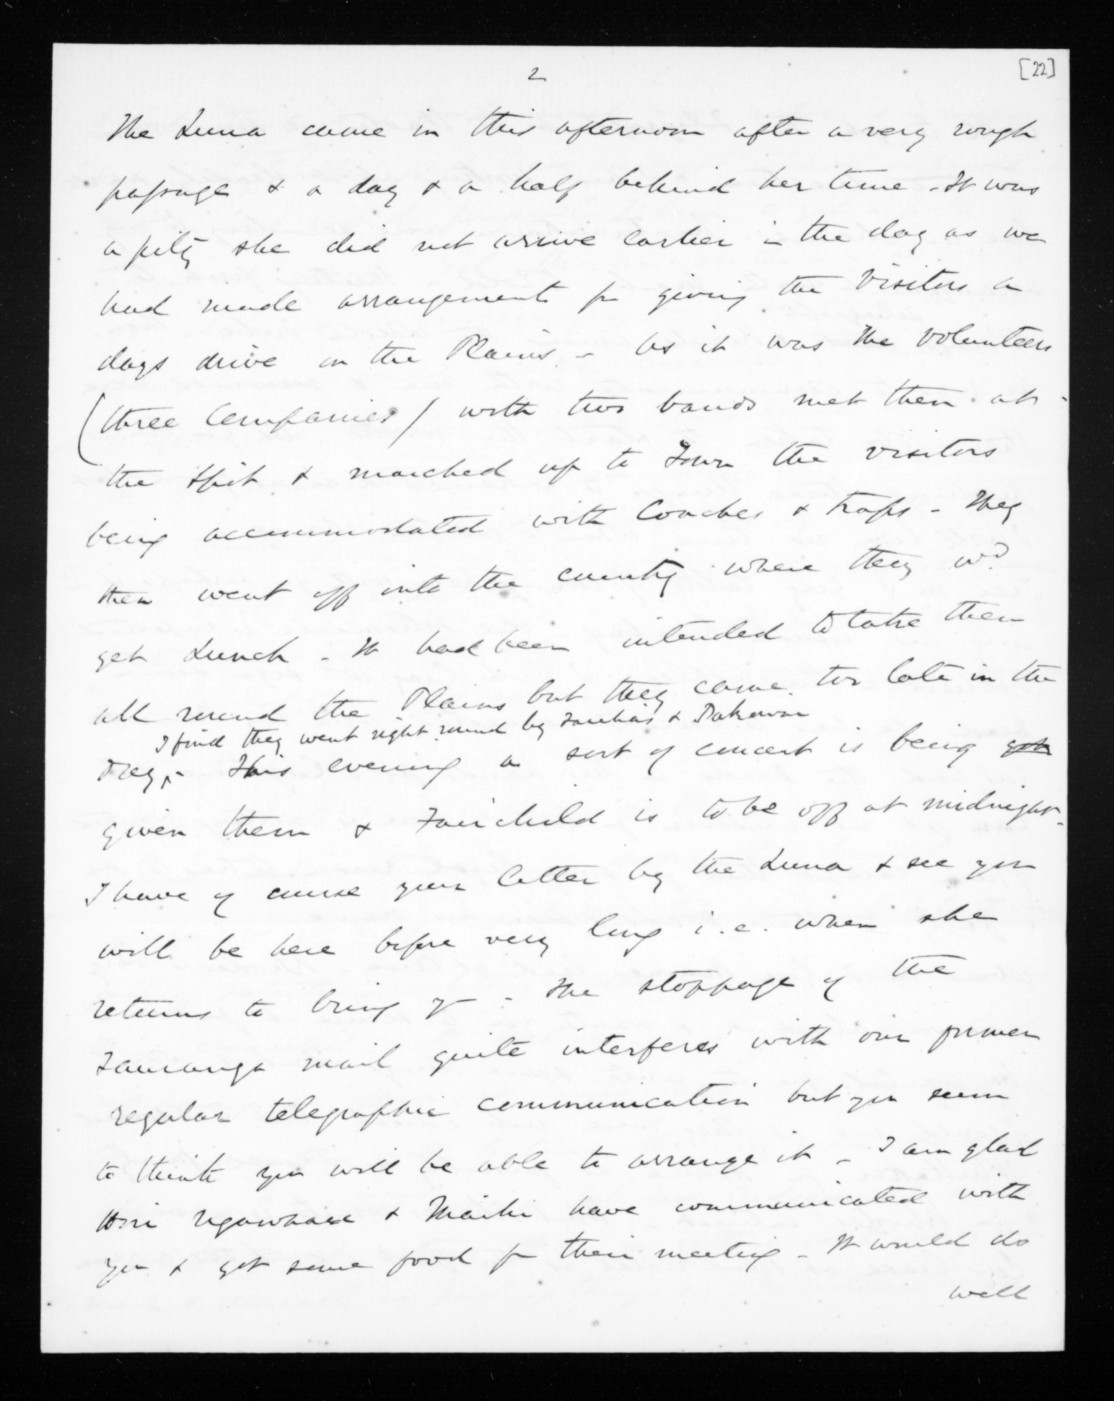 2
[22]
The Luna came in this afternoon after a very rough
passage & a day & a half behind her time - It was
a pity she did not arrive earlier in the day as we
had made arrangements for giving the visitors a
days drive on the Plains - As it was the volunteers
(three Companies) with two bands met them at
the Spit & marched up to Town the visitors
being accommodated with Coaches & traps - They
then went off into the country where they wd
get Lunch - It had been intended to take them
all round the Plains but they came too late in the
I find they went right round by & Pakowai
day - This evening a sort of concert is being
given them & Fairchild is to be off at midnight -
I have of course your letter by the Luna & see you
will be here before very long i.e. when she
returns to bring yr - The stoppage of the
Tauranga mail quite interferes with our former
regular telegraphic communication but you seem
to think you will be able to arrange it - I am glad
have communicated with
you & got some food for their meeting - It would do
well